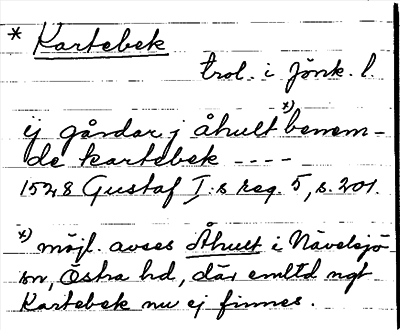 * Kartebek
trol. i Jönk. l.
ij gårdar j åhult *) benem-
de kartebek ----
1528 Gustaf I:s reg. 5, s. 201.
*) möjl. avses Åhult i Nävelsjö
sn, Östra hd, där emltd ngt
Kartebek nu ej finnes.